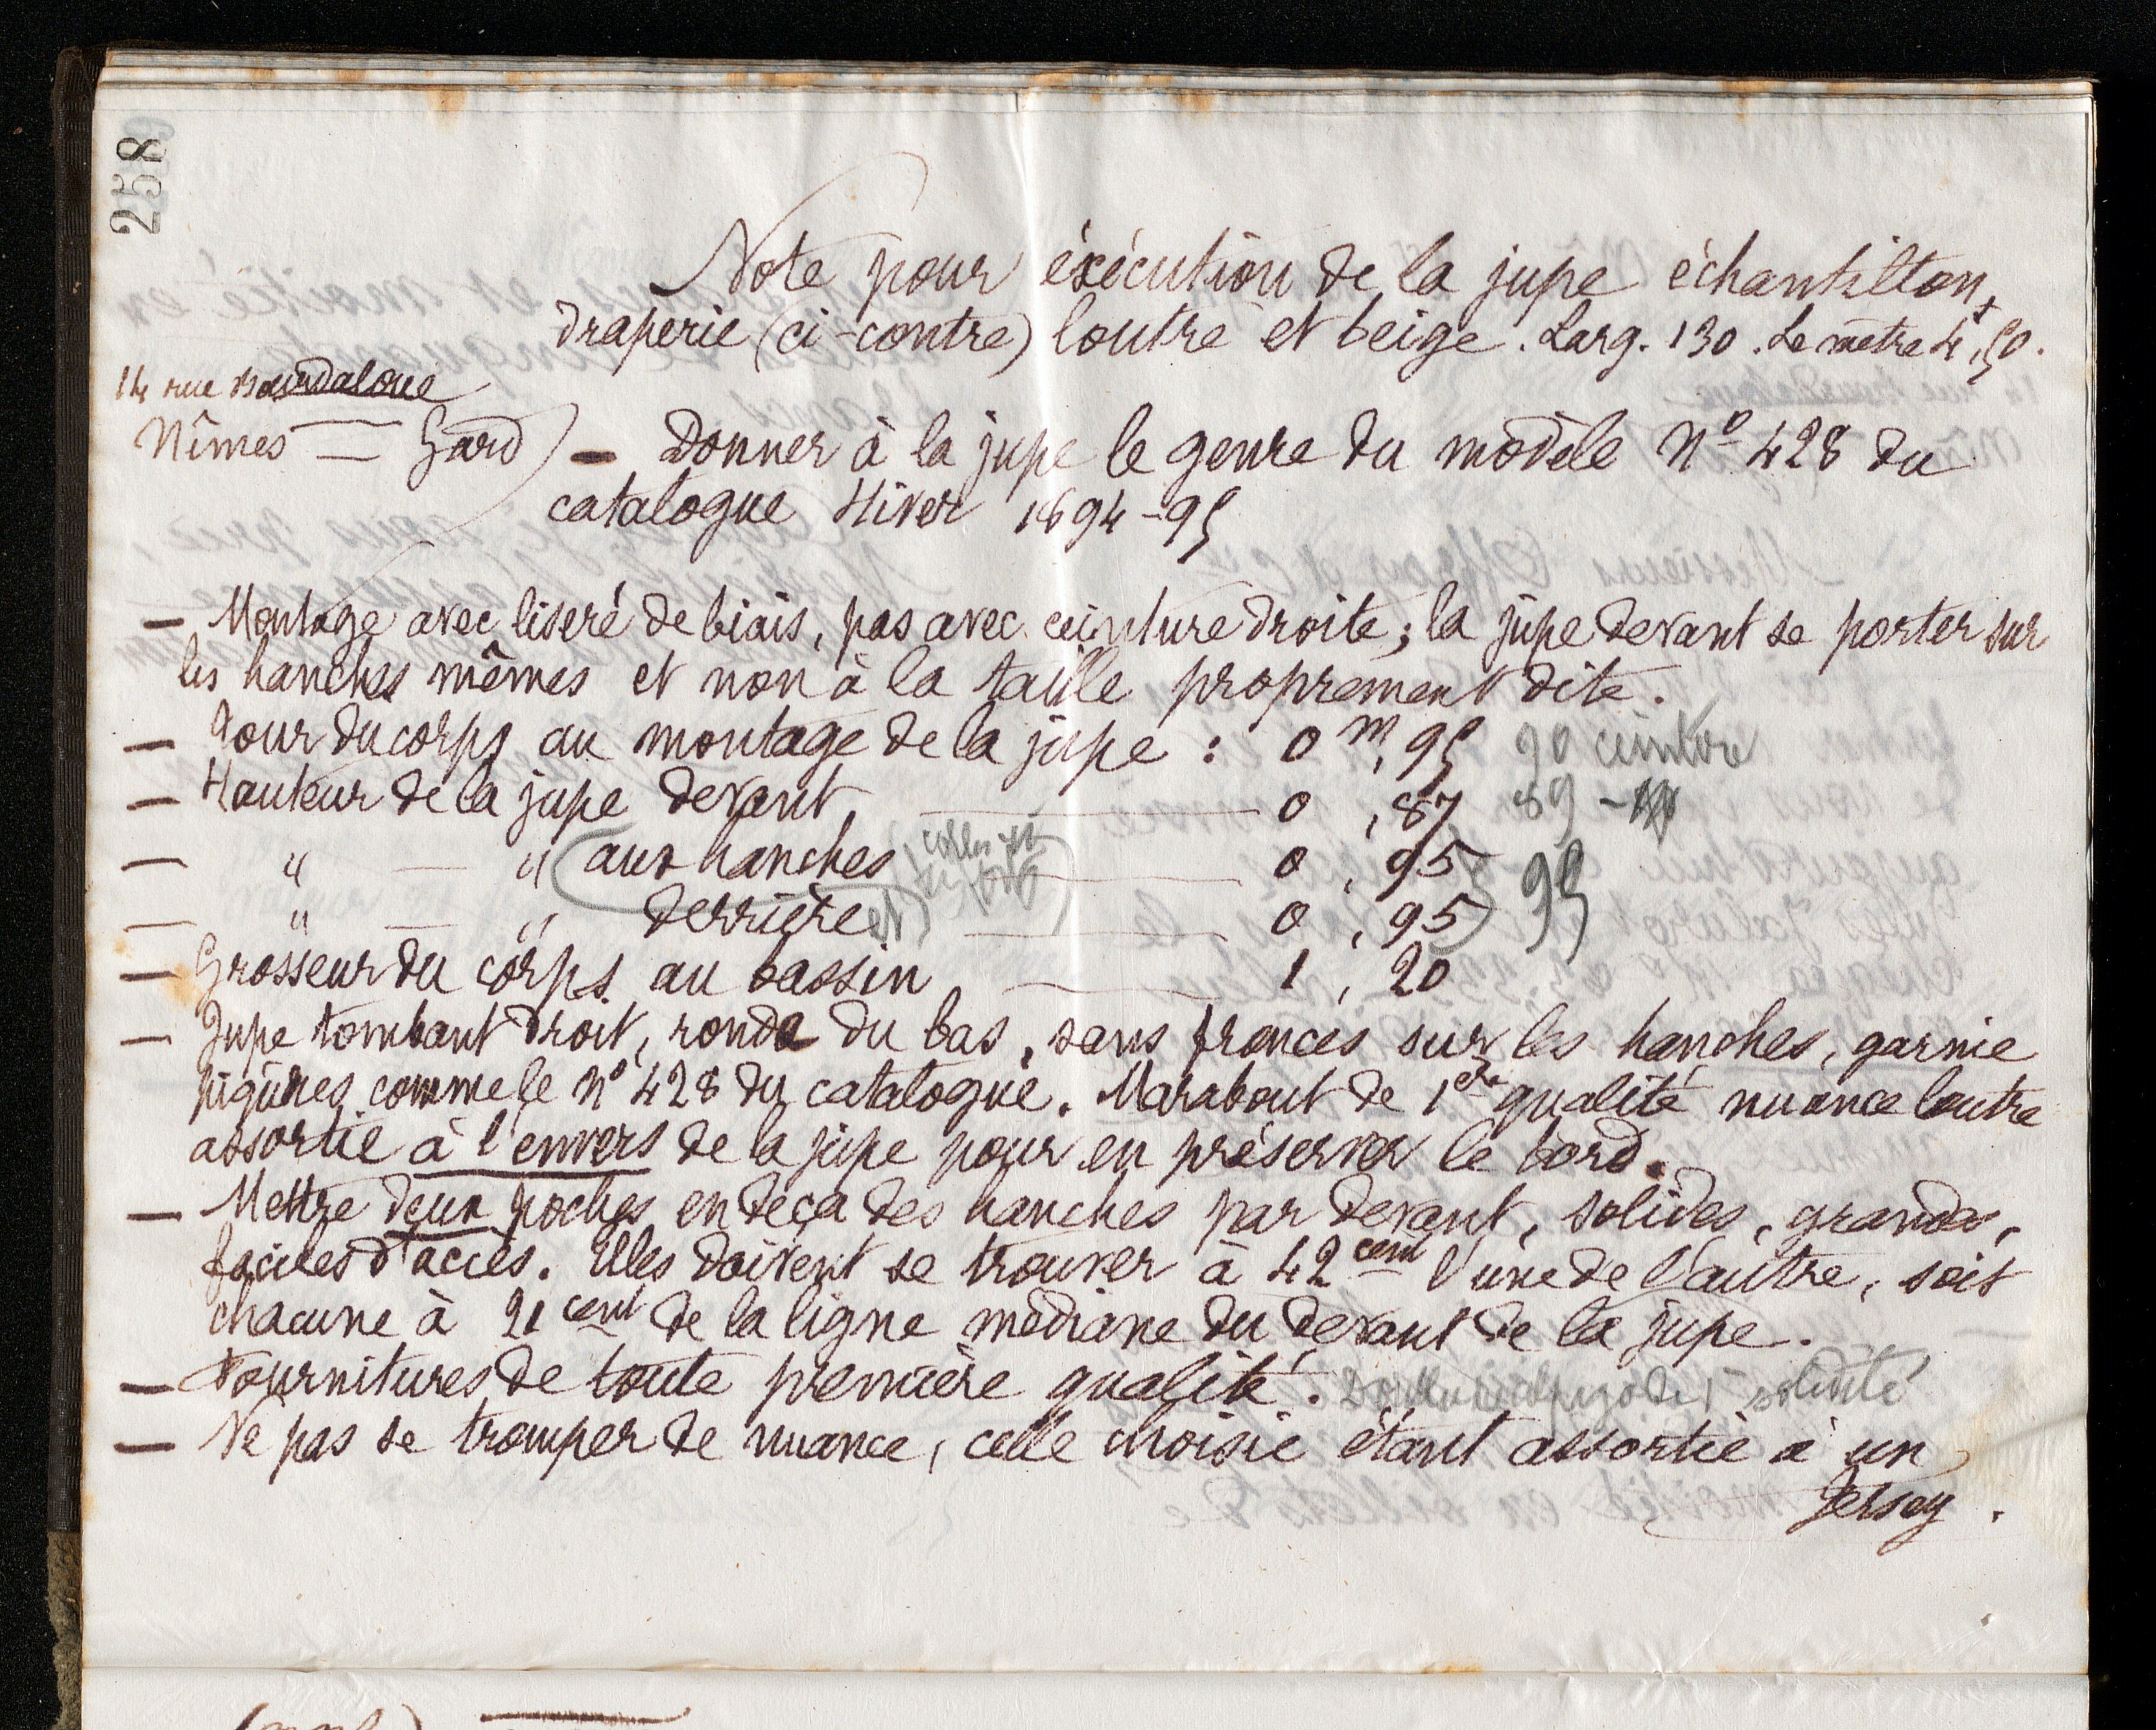 258
Note pour éxécution de la jupe échantillon,
draperie (ci-contre) loutre et beige. Larg. 130. Le mètre 4,50.
14 rue Bourdaloue
Nîmes — Gard
— Donner à la jupe le genre du modèle Nº 428 du
catalogue Hiver 1894-95
— Montage avec liseré de biais, pas avec ceinture droite; la jupe devant se porter sur
les hanches mêmes et non à la taille proprement dite.
— Tour du corps au montage de la jupe : 0 m, 95 90 ceinture
— Hauteur de la jupe devant, — 0 , 87 89 -
— " — " (aux hanches — 0 , 95
— " — " derrière — 0 , 95) 99
— Grosseur du corps au bassin — 1 , 20
— Jupe tombant droit, ronde du bas, sans fronces sur les hanches, garnie
piqûres comme le nº 428 du catalogue. Marabout de 1ère qualité nuance loutre
assortie à l'envers de la jupe pour en préserver le bord.
— Mettre deux poches en deça des hanches par devant, solides, grandes,
faciles d'accès. Elles doivent se trouver à 42 cent l'une de l'autre, soit
chacune à 21 cent de la ligne médiane du devant de la jupe.
— Fournitures de toute première qualité. solidité
— Ne pas se tromper de nuance, celle choisie étant assortie à un
Jersey.